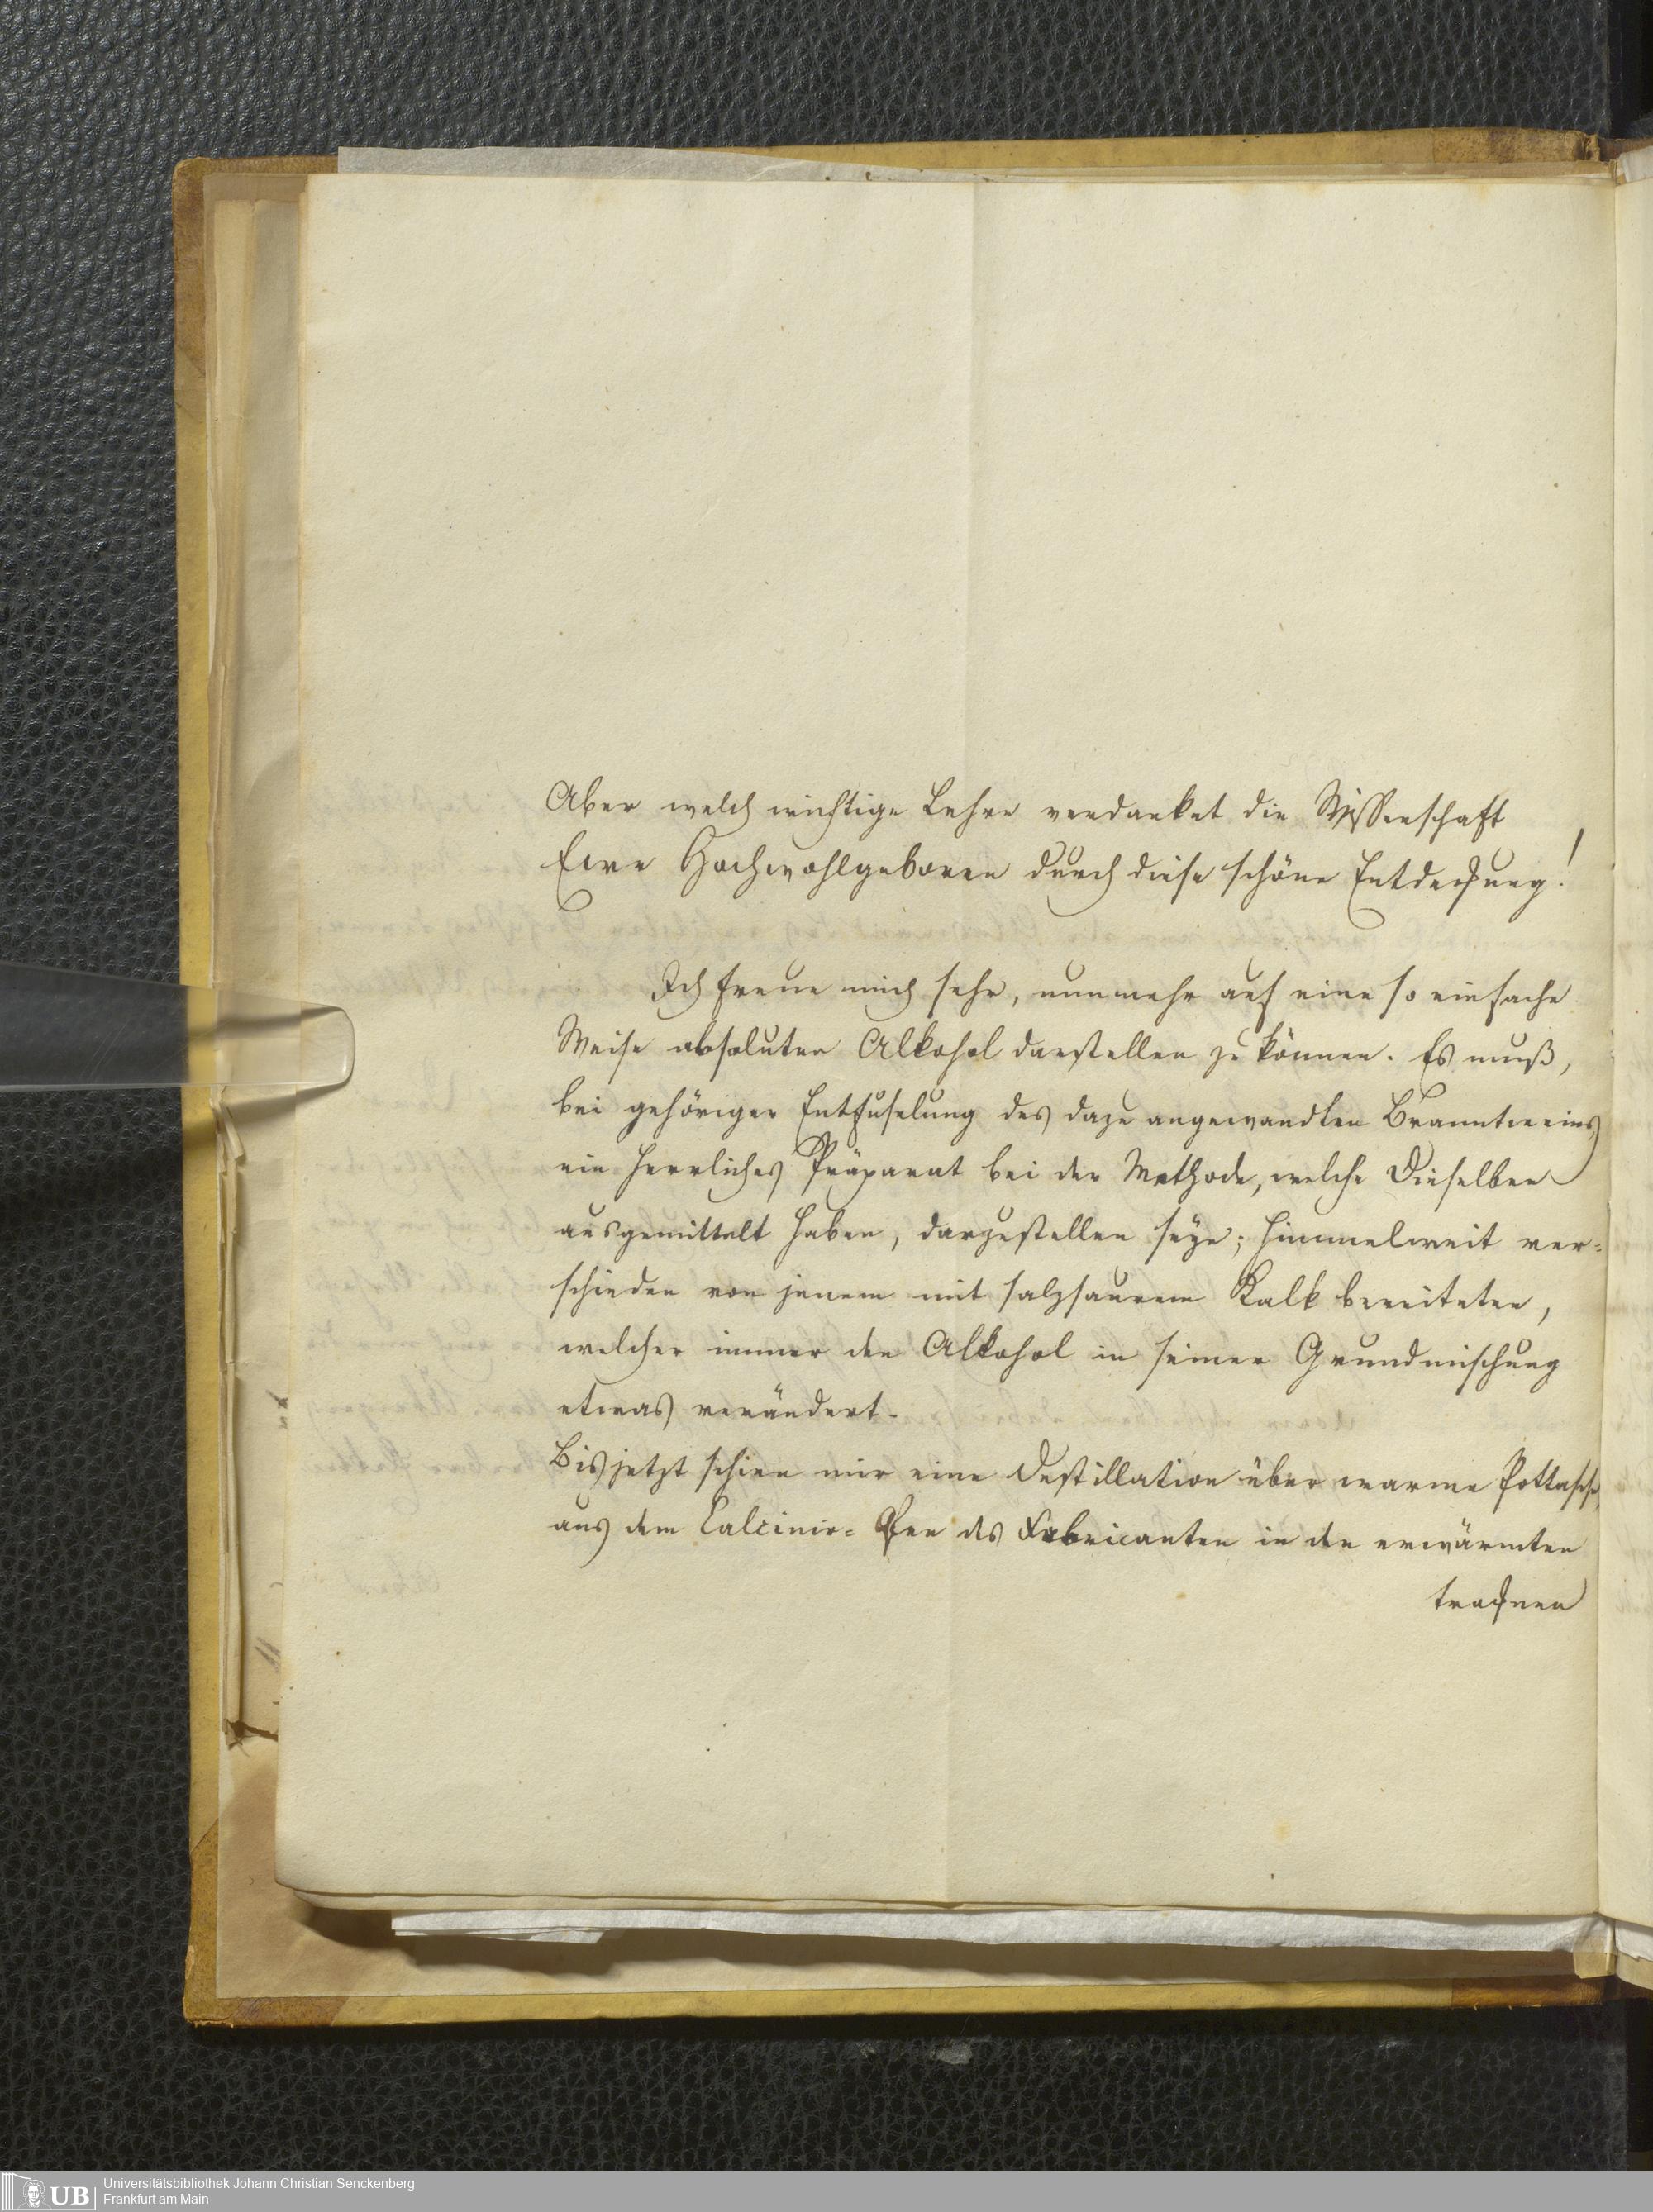 Aber welch wichtige Lehre verdanket die Wissenschaft
Eure Hochwohlgeboren durch diese schöne Entdeckung!
Ich freue mich sehr, nunmehr auf eine so einfache
Weise absoluten Alkohol darstellen zu können. Es muß,
bei gehöriger Entfuselung des dazu angewandten Branntweins
ein herrliches Präparat bei der Methode, welche Dieselben
ausgemittelt haben, darzustellen seyn; himmelweit ver=
schieden von jenem mit salzsaurem Kalk bereiteten,
welcher immer den Alkohol in seiner Grundmischung
etwas verändert.
Bis jetzt schien mir eine Destillation über warme Pottasche
aus dem Calcinir= Ofen des Fabricanten in den erwärmten
trocknen
UB
Universitätsbibliothek Johann Christian Senckenberg
Frankfurt am Main